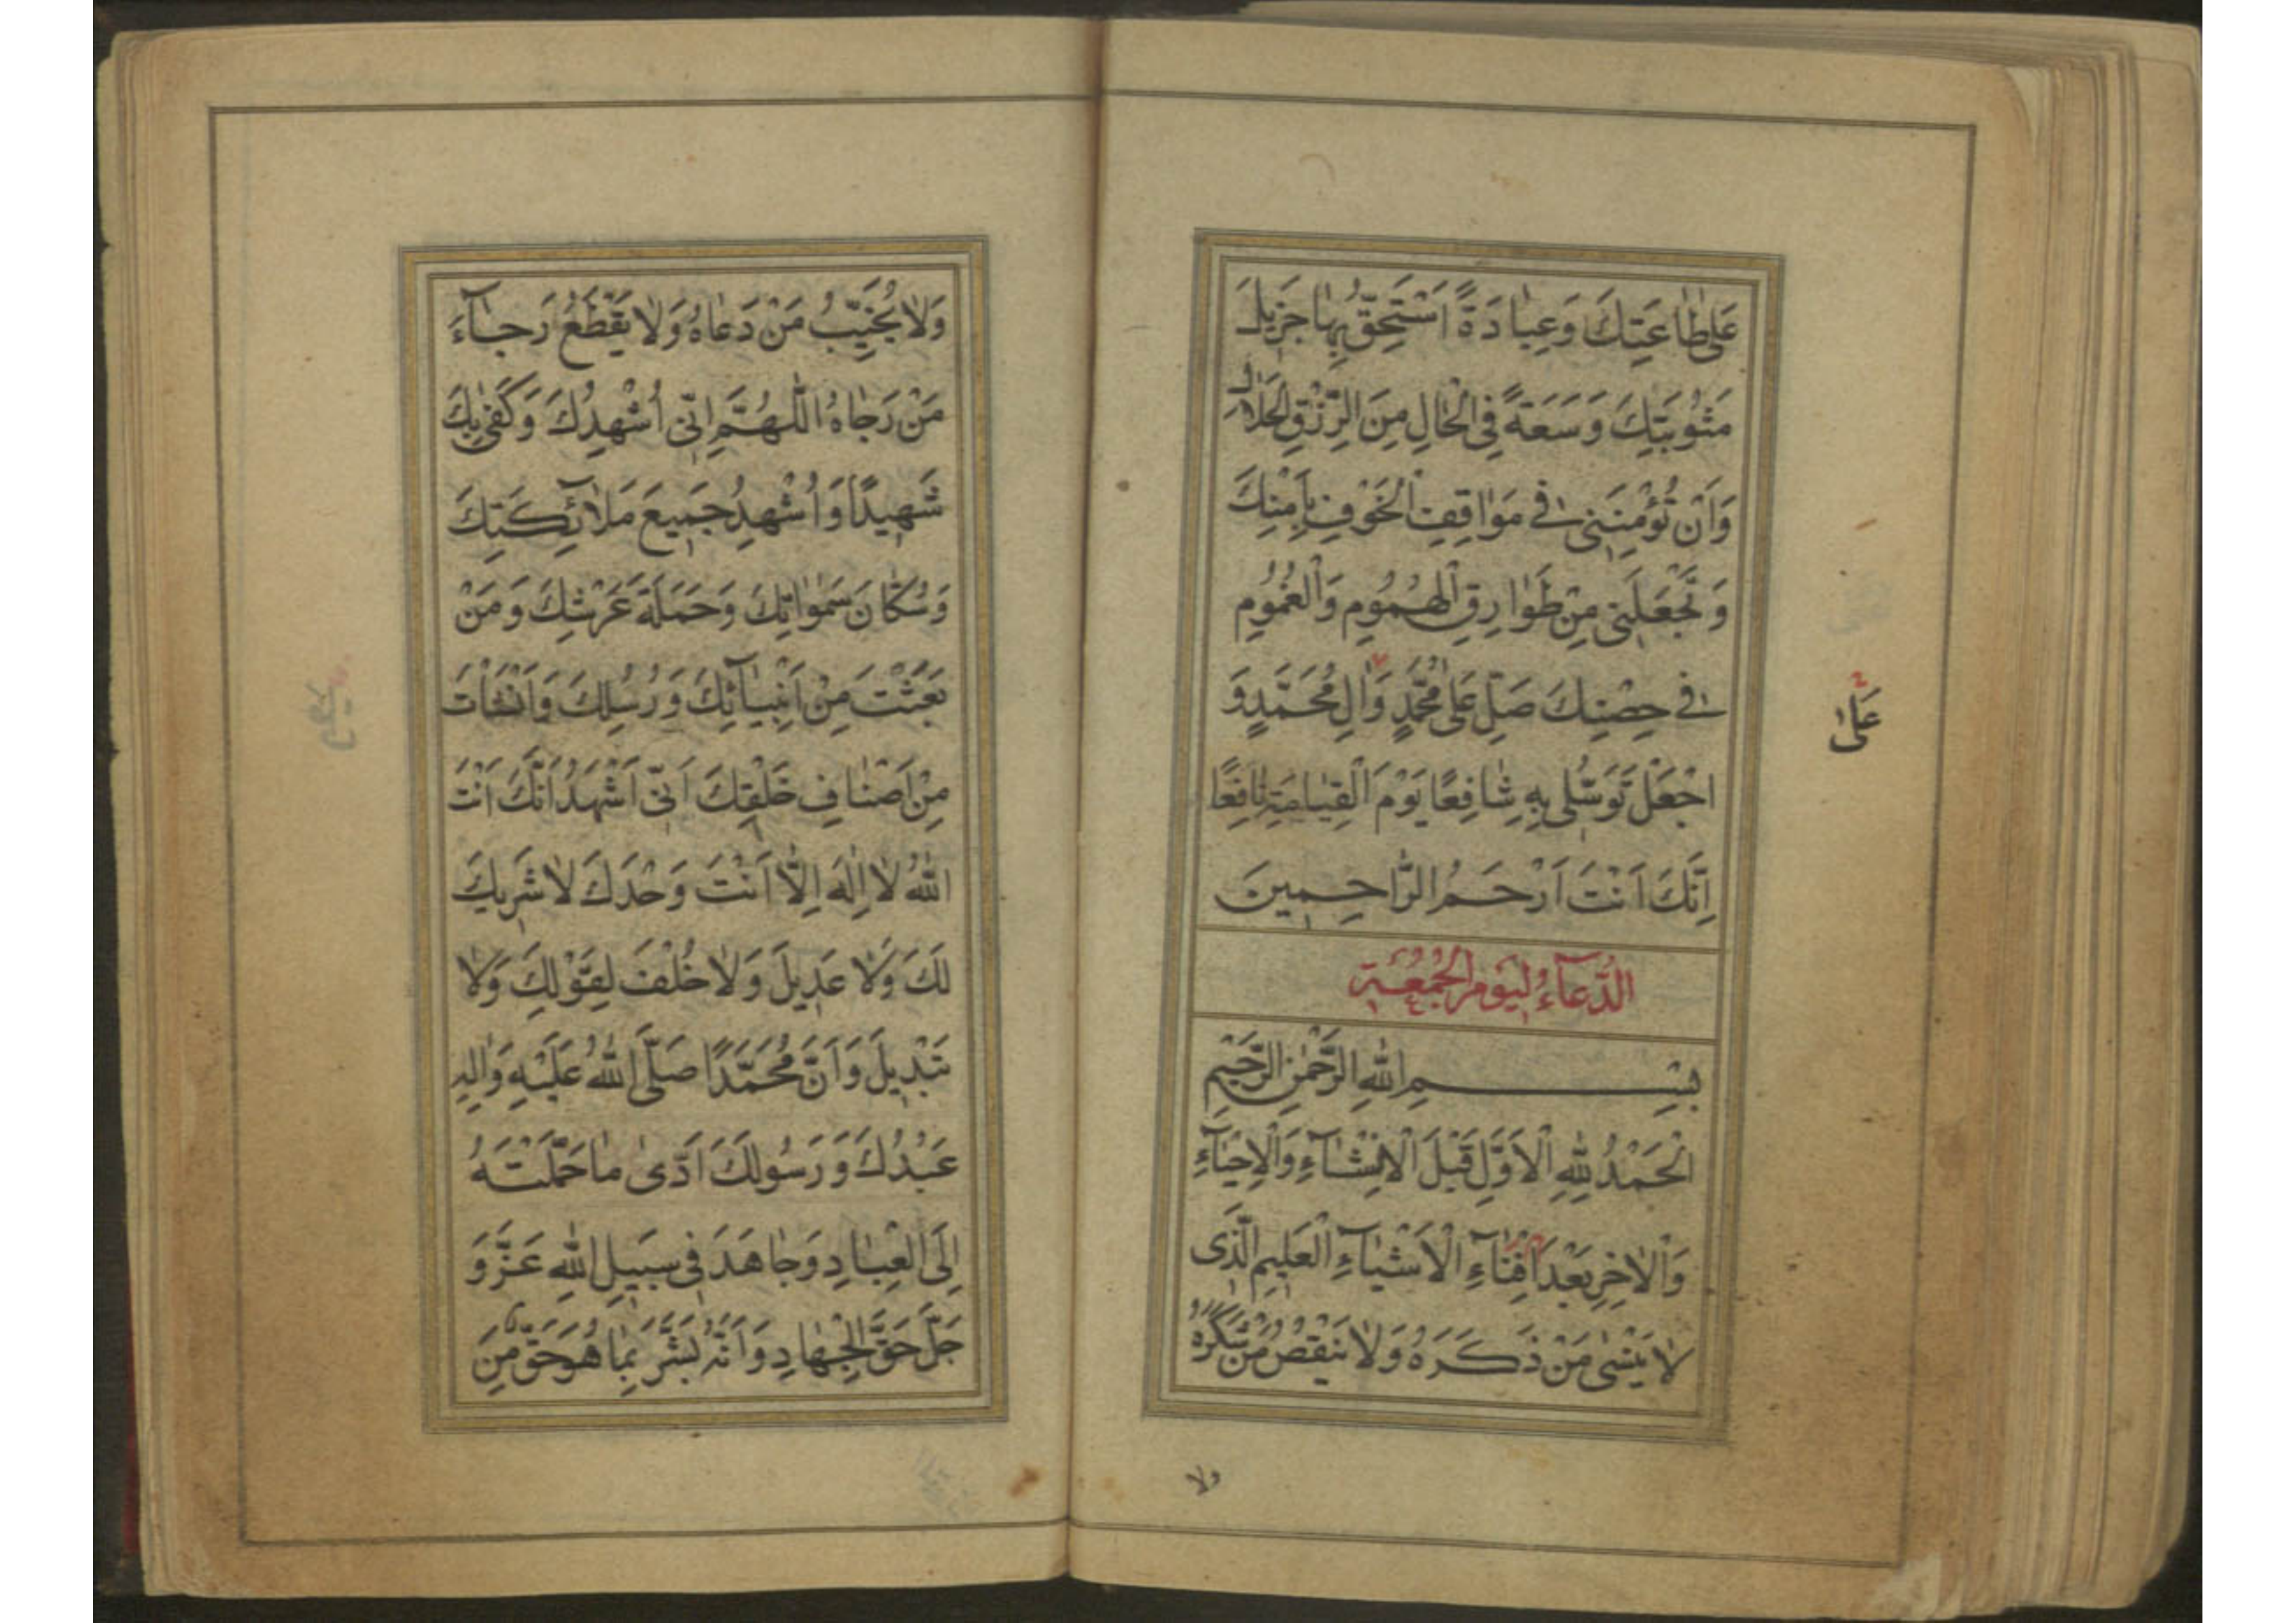 عَلىٰ طٰاعَتِكَ وَعِبٰادَةً اَسْتَحِقُّ بِهٰا جَزيلَ
مَثُوبَتِكَ وَسَعَةً فِي الْحٰالِ مِنَ الرِّزْقِ الْحَلٰالِ
وَاَنْ تُؤْمِنَنى فى مَوٰاقِفِ الْخَوْفِ بِاَمْنِكَ
وَتَجْعَلَنى مِنْ طَوٰارِقِ الْهُمُومِ وَالْغُمُومِ
فى حِصْنِكَ صَلِّ عَلىٰ مُحَمَّدٍ وَاٰلِ مُحَمَّدٍ وَ
عَلىٰ
اجْعَلْ تَوَسُّلى بِهِ شٰافِعًا يَوْمَ الْقِيٰامَةِ نٰافِعًا
اِنَّكَ اَنْتَ اَرْحَمُ الرّٰاحِمينَ
الدُّعآءُ لِيَوْمِ الْجُمُعَةِ
بِسْمِ اللّٰهِ الرَّحْمٰنِ الرَّحيمِ
اَلْحَمْدُ لِلّٰهِ الْاَوَّلِ قَبْلَ الْاِنْشٰآءِ وَالْاِحْيٰآءِ
وَالْاٰخِرِ بَعْدَ اِفْنٰآءِ الْاَشْيٰآءِ الْعَليمِ الَّذى
لٰا يَنْسٰى مَنْ ذَكَرَهُ وَلٰا يَنْقُصُ مَنْ شَكَرَهُ
ولا
وَلٰا يُخَيِّبُ مَنْ دَعٰاهُ وَلٰا يَقْطَعُ رَجٰآءَ
مَنْ رَجٰاهُ اَللّٰهُمَّ اِنّى اُشْهِدُكَ وَكَفىٰ بِكَ
شَهيدًا وَاُشْهِدُ جَميعَ مَلٰآئِكَتِكَ
وَسُكّٰانَ سَمٰوٰاتِكَ وَحَمَلَةَ عَرْشِكَ وَمَنْ
بَعَثْتَ مِنْ اَنْبِيٰآئِكَ وَرُسُلِكَ وَاَنْشَأْتَ
مِنْ اَصْنٰافِ خَلْقِكَ اَنّى اَشْهَدُ اَنَّكَ اَنْتَ
اللّٰهُ لٰا اِلٰهَ اِلّٰا اَنْتَ وَحْدَكَ لٰا شَريكَ
لَكَ وَلٰا عَديلَ وَلٰا خُلْفَ لِقَوْلِكَ وَلٰا
تَبْديلَ وَاَنَّ مُحَمَّدًا صَلَّى اللّٰهُ عَلَيْهِ وَاٰلِهِ
عَبْدُكَ وَرَسُولُكَ اَدّىٰ مٰا حَمَّلْتَهُ
اِلَى الْعِبٰادِ وَجٰاهَدَ فى سَبيلِ اللّٰهِ عَزَّ وَ
جَلَّ حَقَّ الْجِهٰادِ وَاَنَّهُ بَشَّرَ بِمٰا هُوَ حَقٌّ مِنَ